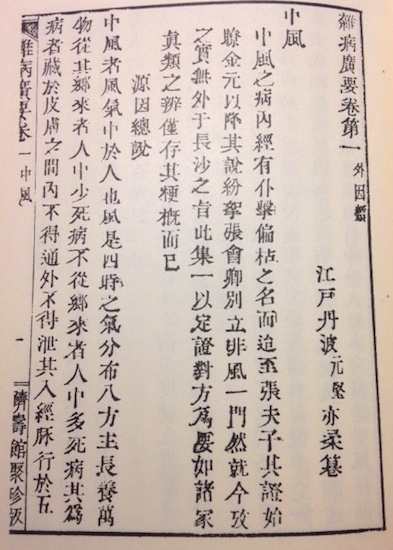 雜病廣要卷第一 外因類
江戶丹波元堅亦柔纂
中風
中風之病內經有仆擊偏枯之名而迨至張夫子其證始
瞭金元以降其說紛挐張會卿別立非風一門然就今攷
之實無外于長沙之旨此集一以定證對方爲要如諸家
眞類之辨僅存其梗槪而已
源因總說
中風者風氣中於人也風是四時之氣分布八方主長養萬
物從其鄉來者人中少死病不從鄉來者人中多死病其爲
病者藏於皮膚之間內不得通外不得泄其入經脉行於五
雜病廣要卷一 中風 一 躋壽館聚珍版